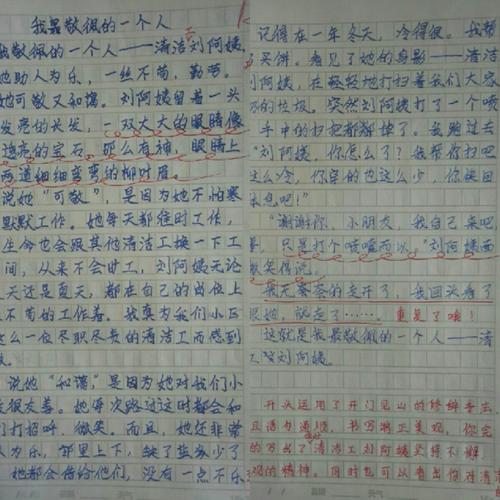 我最敬佩的一个人
我最敬佩的一个人——清洁刘阿姨
她助人为乐,一丝不苟,勤劳。
她可敬又和蔼。刘阿姨留着一头
发亮的长发,一双大大的眼睛像
亮的宝石,那么有神,眼睛上
两道细细弯弯的柳叶眉。
说她“可敬”,是因为她不怕寒
默默工作。她每天都准时工作,
生命也会跟其他清洁工换一下工
间,从来不会旷工,刘阿姨无论
天还是夏天,都在自己的岗位上
不苟的工作着。我真为我们小区
么一位尽职尽责的清洁工而感到
说她“和蔼”,是因为她对我们小
友很友善。她每次路过这时都会和
们打招呼,微笑,而且,她还非常
人为乐,邻里上下,缺了盐或少了
她都会借给他们,没有一点不乐
记得在一年冬天,冷得很。我帮
买饼。看见了她的身影——清洁
刘阿姨,在轻轻地打扫着我们大家
的垃圾。突然刘阿姨打了一个喷
手中的扫把都掉了。我跑过去
“刘阿姨,你怎么了?我帮你扫吧
这么冷,你穿的也这么少,你快回
休息吧!”
“谢谢你,小朋友,我自己来吧
只是打个喷嚏而以。”刘阿姨面
微笑得说。
我无奈的走开了,我回头看了
眼她,就走了……。重复了哦!
这就是我最敬佩的一个人——清
刘阿姨。
开头运用了开门见山的修辞手法
且语句通顺,书写端正美观,你完
的写出了清洁工刘阿姨
的精神。同时也可以看出你对清洁